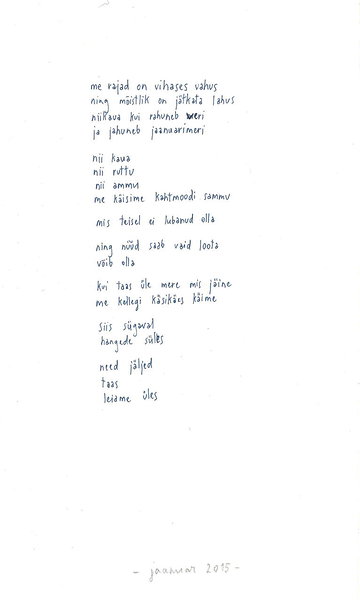 me rajad on vihases vahus
ning mõistlik on jätkata lahus
niikaua kui rahuneb veri
ja jahuneb jaanuarimeri
nii kaua
nii ruttu
nii ammu
me käisime kahtmoodi sammu
mis teisel ei lubanud olla
ning nüüd saab vaid loota
võib olla
kui taas üle mere mis jäine
me kellegi käsikäes käime
siis sügaval
hangede süles
need jäljed
taas
leiame üles
- jaanuar 2015 -